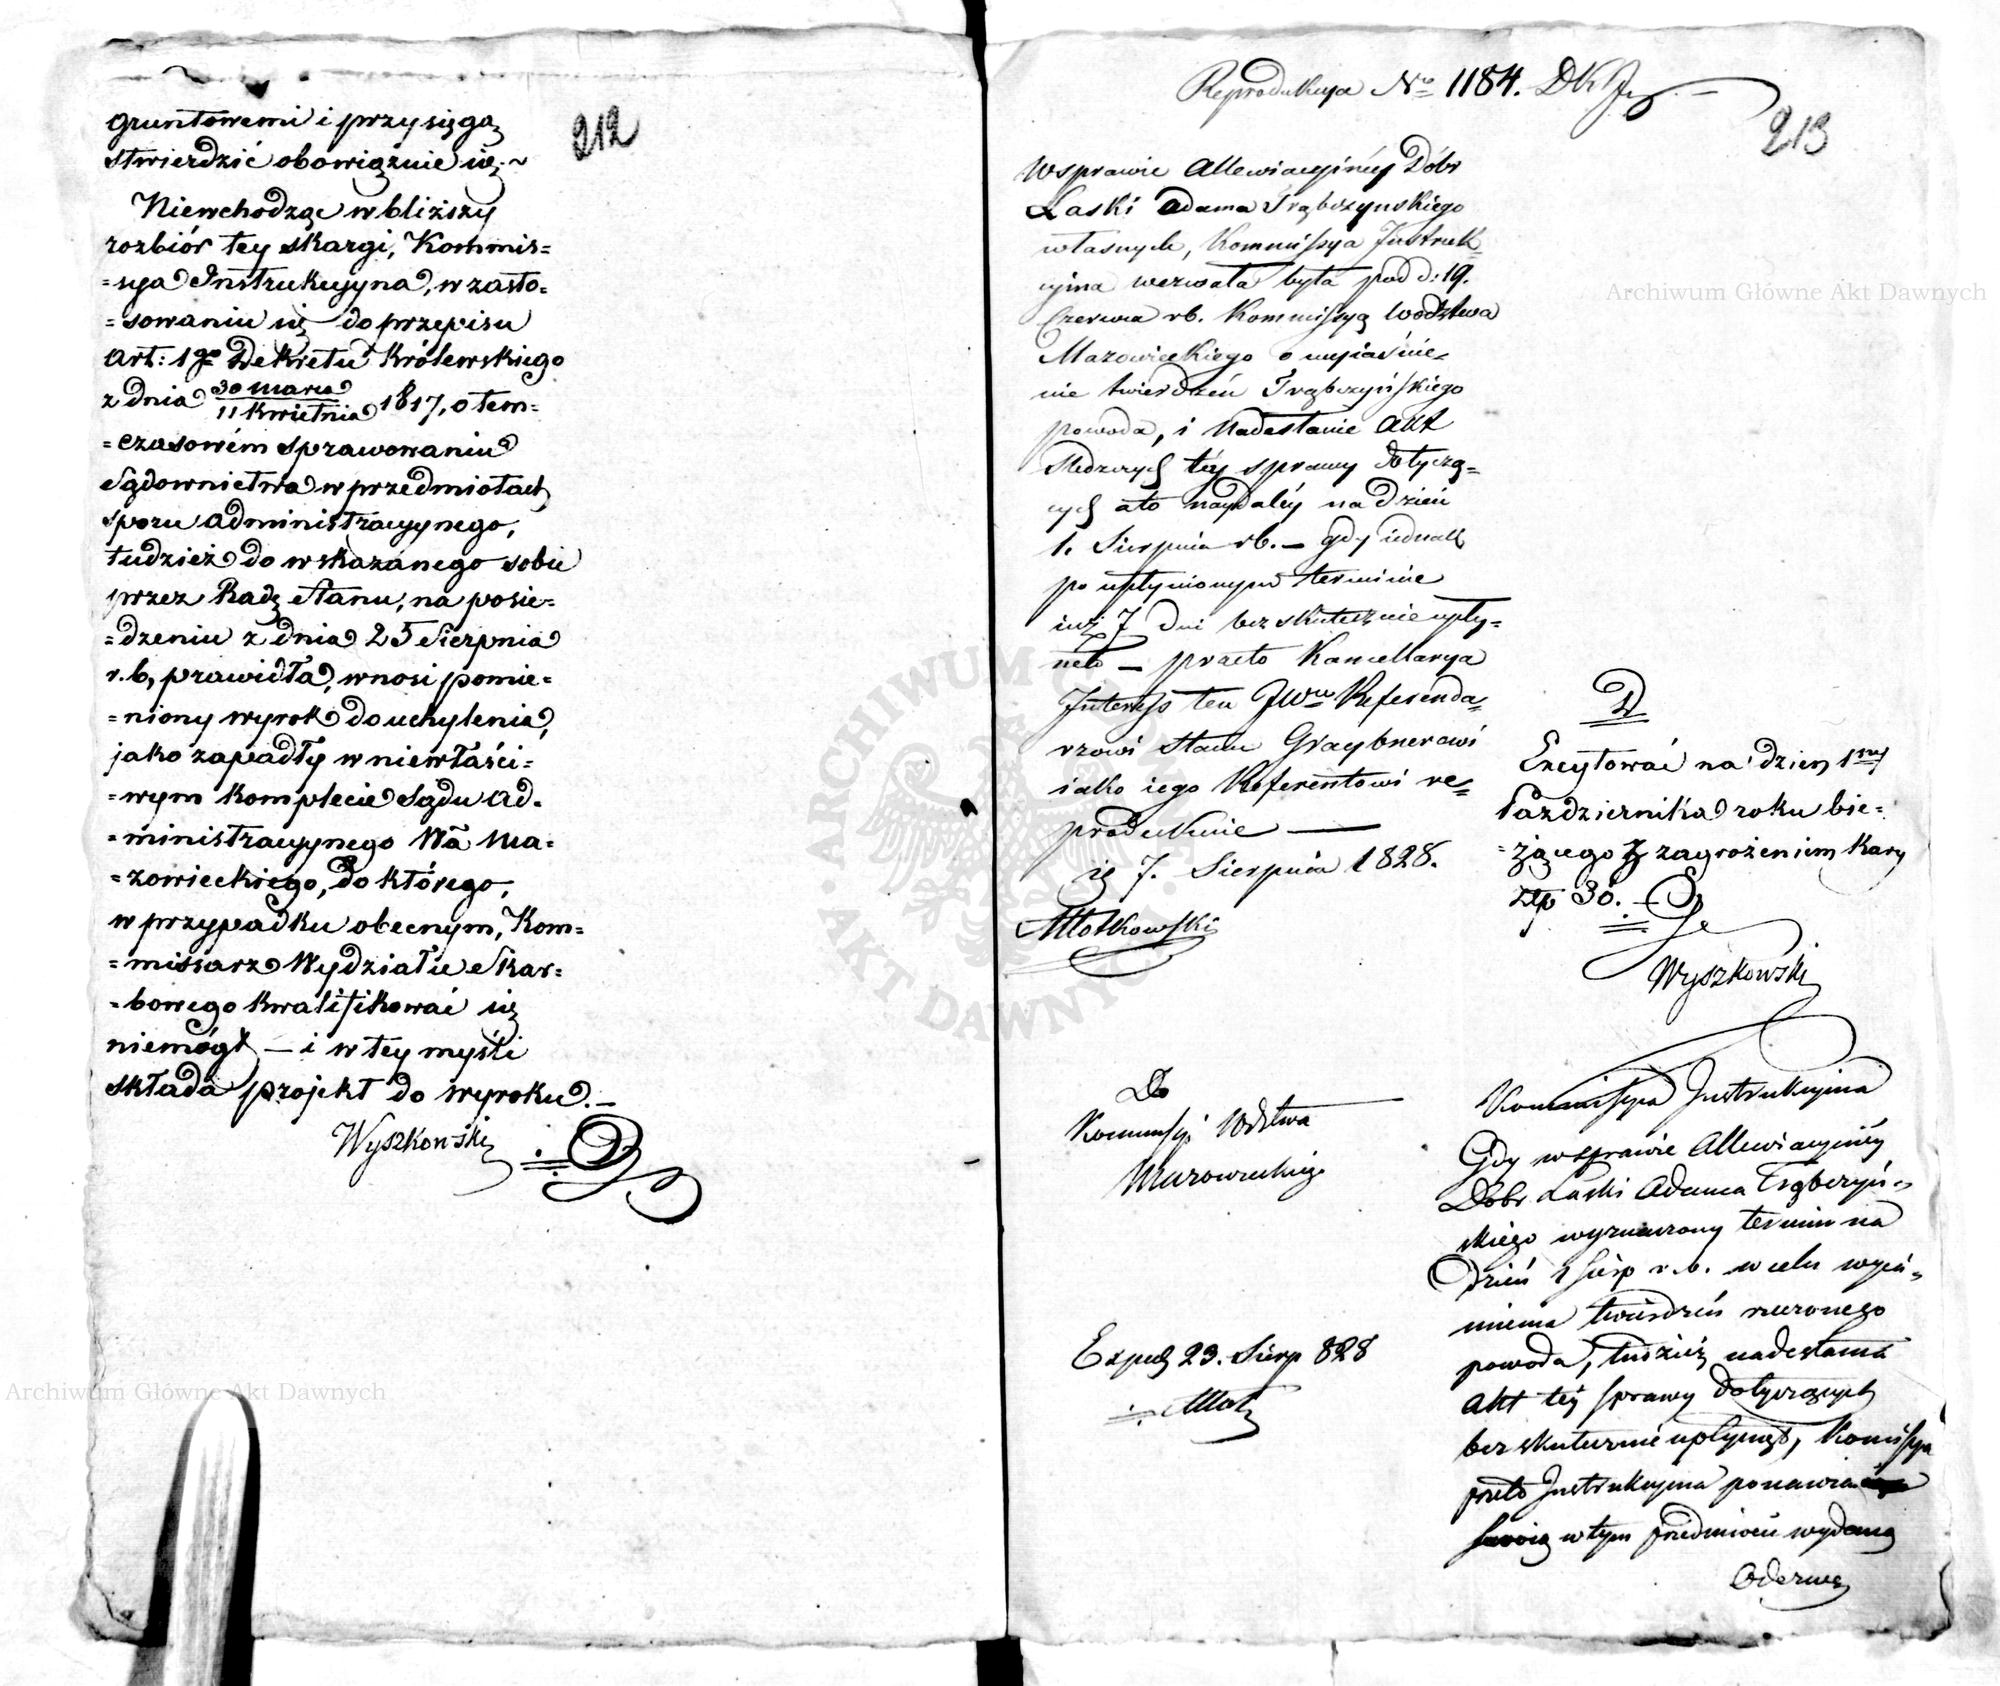 212
gruntowemi i przysięgą
stwierdzić obowiązuie się. ~
Niewchodząc w bliższy
rozbiór tey skargi, Kommis=
=sya Instrukcyyna, w zasto=
=sowaniu się do przepisu
Art: 1go Dekretu Królewskiego
z dnia 30 marca / 11 kwietnia 1817, o tem=
=czasowém sprawowaniu
Sądownictwa w przedmiotach
sporu administracyynego,
tudzież do wskazanego sobie
przez Radę Stanu, na posie=
=dzeniu z dnia 25 Sierpnia
r.b, prawidła, wnosi pomie=
=niony wyrok do uchylenia,
jako zapadły w niewłaści=
=wym komplecie Sądu Ad=
=ministracyynego Wa Ma=
=zowieckiego, do którego,
w przypadku obecnym, Kom=
=missarz Wydziału Skar=
=bowego kwalifikować się
niemógł — i w tey myśli
składa projekt do wyroku. —
Wyszkowski
Reprodukcya No 1184.
213
W sprawie Allewiacyinéy Dóbr
Łaski Adama Trąbczynskiego
własnych, Kommissya Instruk
cyina wezwała była pod d: 19.
Czerwca rb. Kommissyą Wodztwa
Mazowieckiego o wyiaśnie=
nie twierdzeń Trąbczyńskiego
powoda, i nadesłanie Akt
śledczych téy sprawy dotyczą=
cych a to naydaléy na dzień
1. Sierpnia rb. — gdy iednak
po upłynionym terminie
iuż 7 dni bezskutecznie upły=
nęło — przeto Kancellarya
Interess ten JWu Referenda=
rzowi Stanu Graybnerowi
iako iego Referentowi re=
produkuie ——
7. Sierpnia 1828.
Młotkowski
D
Excytować na dzień 1szy
Października roku bie=
=żącego z zagrożeniem kary
złp 30. —
Wyszkowski
Do
Kommissyi Wdztwa
Mazowieckiego
Exped 23. Sierp 828
Młot
Kommissya Instrukcyina
Gdy w sprawie Allewiacyinéy
Dóbr Łaski Adama Trąbczyń=
skiego wyznaczony termin na
dzień 1 Sierp r.b. w celu wyia=
snienia twierdzeń rzeczonego
powoda, tudzież nadesłania
Akt téy sprawy dotyczących
bezskutecznie upłynął, Komissya
przeto Instrukcyina ponawia
swoią w tym przedmiocie wydaną
Odezwę
Archiwum Główne Akt Dawnych
Archiwum Główne Akt Dawnych
ARCHIWUM GŁÓWNE AKT DAWNYCH